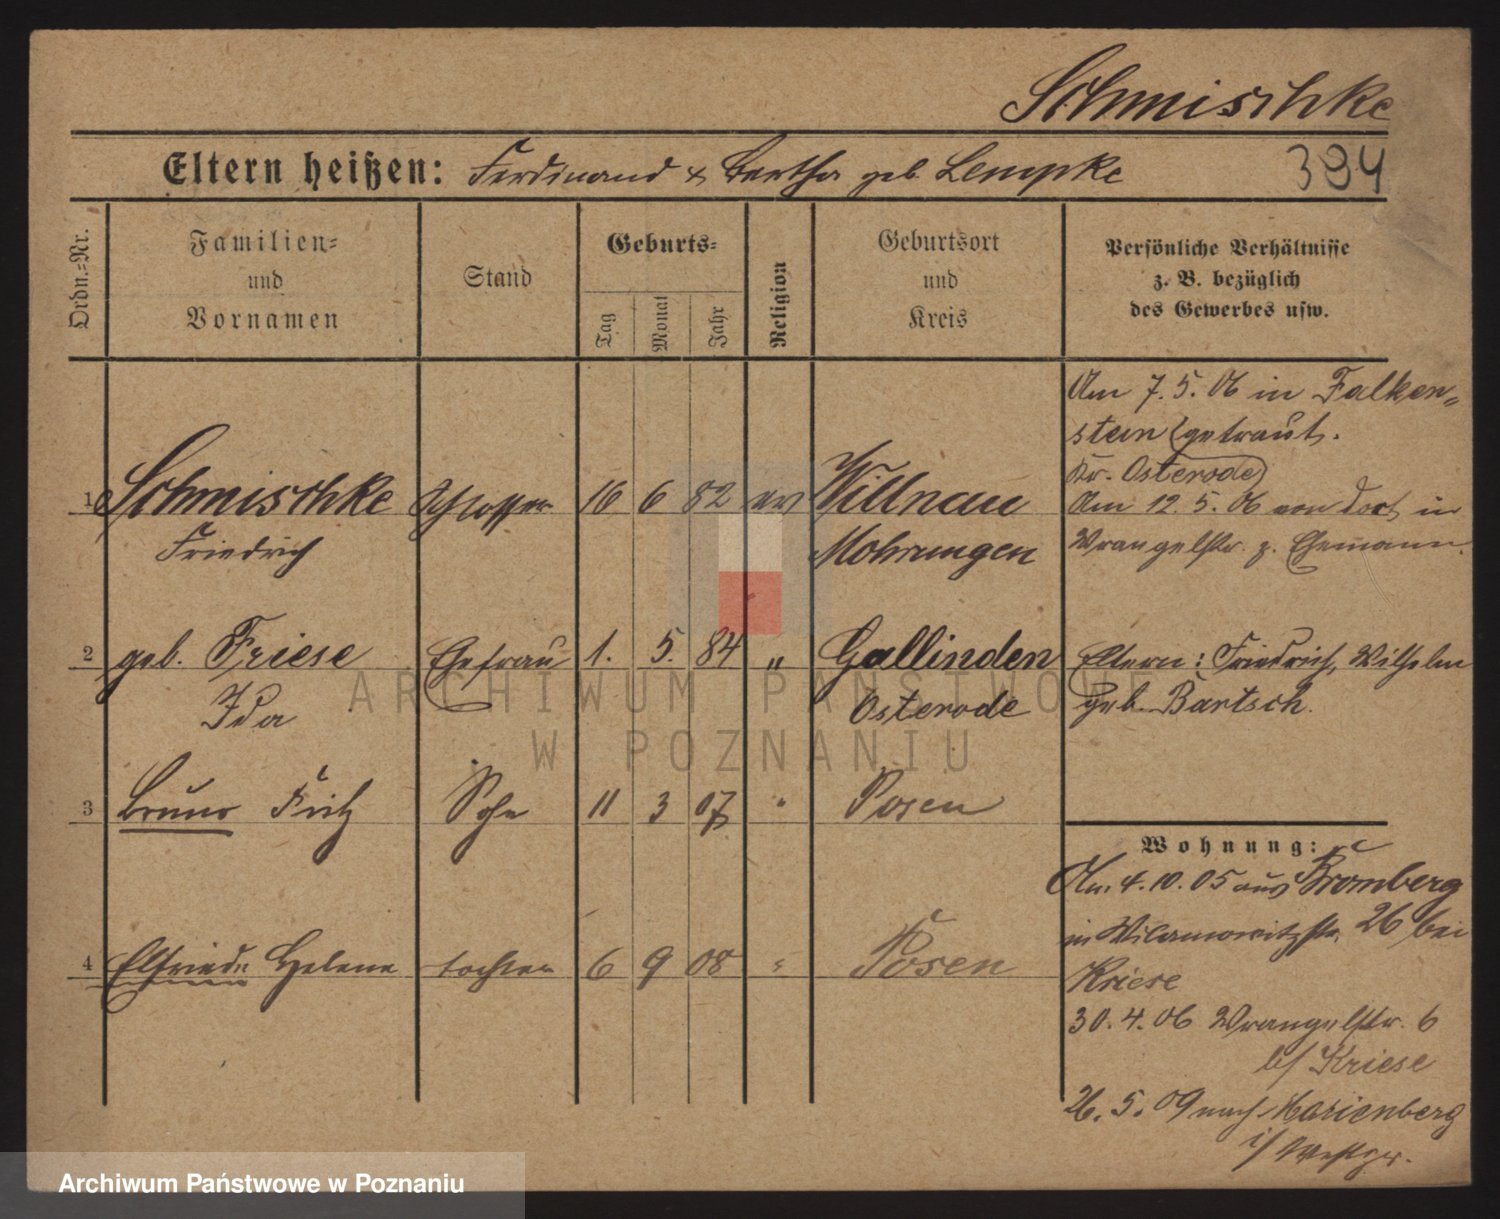 Schmischke
Eltern heißen: Ferdinand & Bertha geb. Lempke
394
Ordn.-Nr.
Familien-
und
Vornamen
Stand
Geburts-
Tag
Monat
Jahr
Religion
Geburtsort
und
Kreis
Persönliche Verhältnisse
z. B. bezüglich
des Gewerbes usw.
Am 7. 5. 06 in Falken-
stein (getraut.
Kr. Osterode)
1 Schmischke Schlosser 16 6 82 ev Willnau
Friedrich Mohrungen
Am 12. 5. 06 von dort in
Wrangelstr. z. Ehemann.
2 geb. Friese Ehefrau 1. 5. 84 " Gallinden
Ida Osterode
Eltern: Friedrich, Wilhelm
geb. Bartsch.
3 Bruno Fritz Sohn 11 3 07 " Posen
4 Elfriede Helene tochter 6 9 08 " Posen
Wohnung:
An. 4. 10. 05 aus Bromberg
in Wilamowitzstr. 26 bei
Kriese
30. 4. 06 Wrangelstr. 6
b/ Kriese
26. 5. 09 nach Marienberg
i/ Westpr.
ARCHIWUM PAŃSTWOWE
W POZNANIU
Archiwum Państwowe w Poznaniu